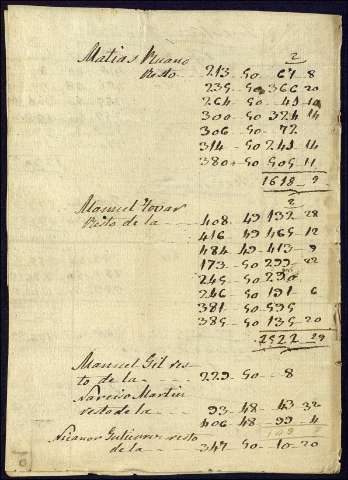 2
Matias Ruano
Resto 213 - 50 67 - 8
235 - 50 366 - 20
264 - 50 - 41 - 10
300 - 50 324 - 14
306 - 50 - 72
314 - 50 241 - 14
380 - 50 505 - 11
1618 - 9
2
Manuel Tovar
Resto de la 408 - 49 132 - 28
416 - 49 465 - 12
484 - 49 413 - 9
173 - 50 299 - 22
245 - 50
246 - 50 191 - 6
381 - 50 595
385 - 50 135 - 20
2522 - 29
Manuel Gil res-
to de la 229 - 50 - 8
Narciso Martin
resto de la 93 - 48 - 43 32
406 - 48 - 99 - 4
Nicanor Gutierrez resto
de la 347 - 50 - 10 - 20